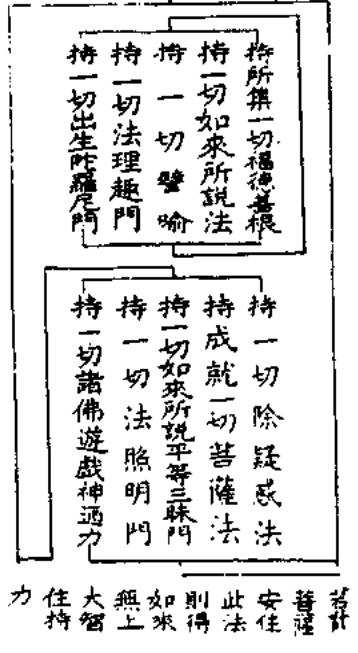 持所撰一切福德善根
持一切如來所說法
持一切譬喻
持一切法理趣門
持一切出生陀羅尼門
持一切除疑惑法
持成就一切菩薩法
持一切如來所說平等三昧門
持一切法照明門
持一切諸佛遊戲神通力
若諸
菩薩
安住
此法
則得
如來
無上
大智
住持
力